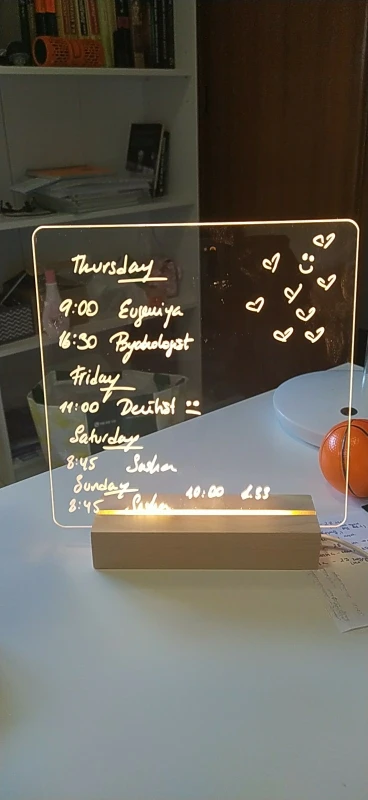 Thursday
9:00 Evgeniya
16:30 Psychologist
Friday
11:00 Dentist
Saturday
8:45 Sasha
Sunday 10:00
8:45 Sasha